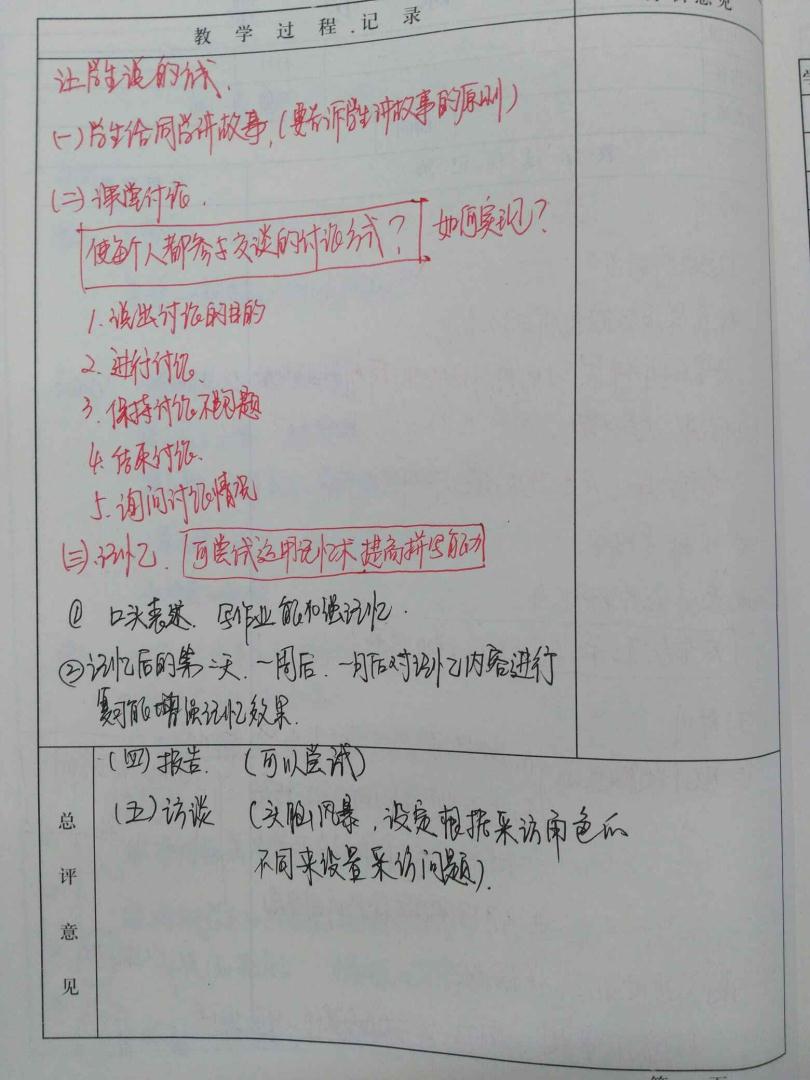 教学过程.记录
评意见
让学生说的方式.
(一)学生给同学讲故事,(要告诉学生讲故事的原则)
(二)课堂讨论.
使每个人都参与交谈的讨论方式? 如何实现?
1.说出讨论的目的
2.进行讨论.
3.保持讨论不跑题
4.结束讨论.
5.询问讨论情况
(三)记忆. 可尝试运用记忆术提高拼写能力
① 口头表述、写作业能加强记忆.
②记忆后的第二天.一周后.一月后对记忆内容进行
复习能增强记忆效果.
(四)报告. (可以尝试)
(五)访谈 (头脑风暴,设定根据采访角色的
不同来设置采访问题).
总评意见